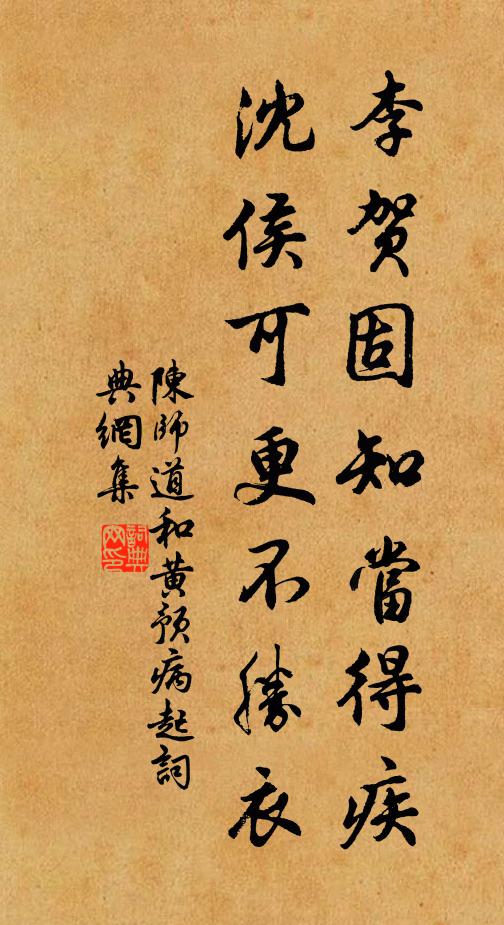 李賀固知當得疾
沈侯可更不勝衣
陳師道和黃預病起詞
典網集
詞典网印